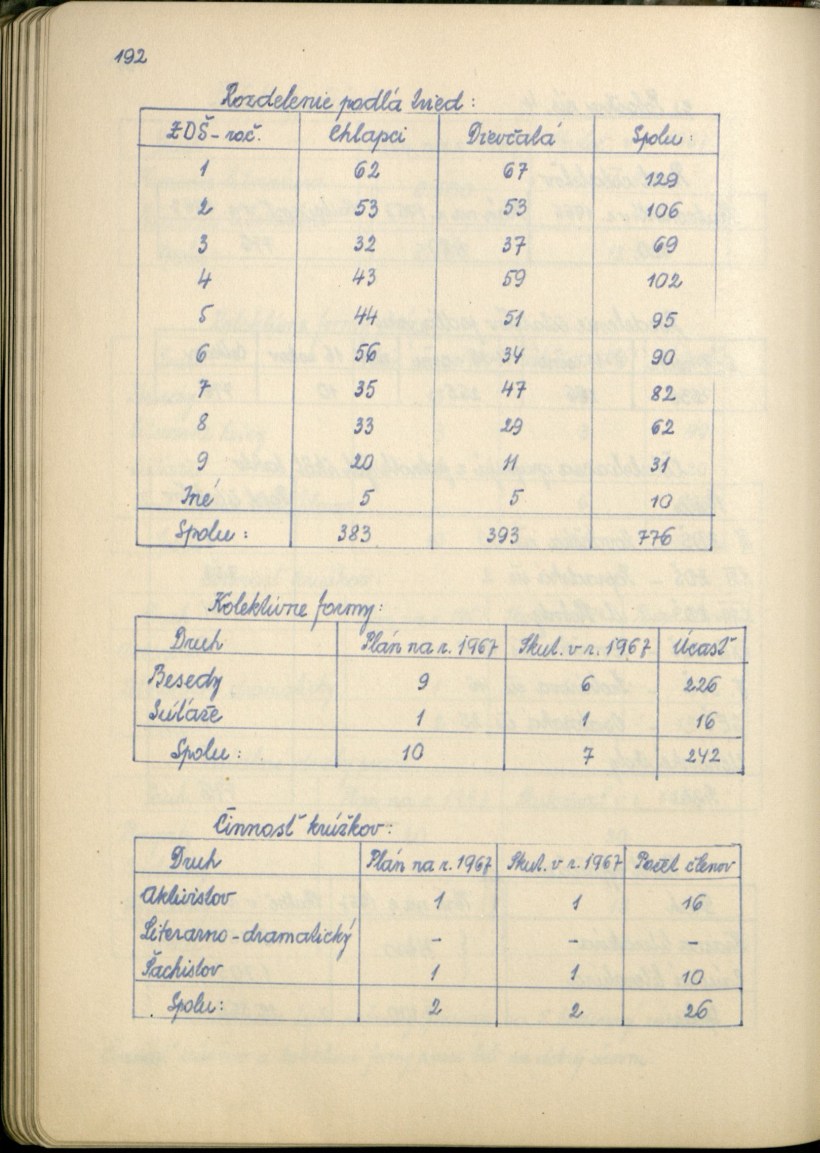 192
Rozdelenie podlá tried:
ZDŠ-roč. Chlapci Dievčatá Spolu:
1 62 67 129
2 53 53 106
3 32 37 69
4 43 59 102
5 44 51 95
6 56 34 90
7 35 47 82
8 33 29 62
9 20 11 31
Iné 5 5 10
Spolu: 383 393 776
Kolektívne formy:
Druh Plán na r. 1967 Skut. v r. 1967 Účasť
Besedy 9 6 226
Súťaže 1 1 16
Spolu: 10 7 242
Činnosť krúžkov:
Druh Plán na r. 1967 Skut. v r. 1967 Počet členov
Aktivistov 1 1 16
Literarno-dramatický - - -
Šachistov 1 1 10
Spolu: 2 2 26